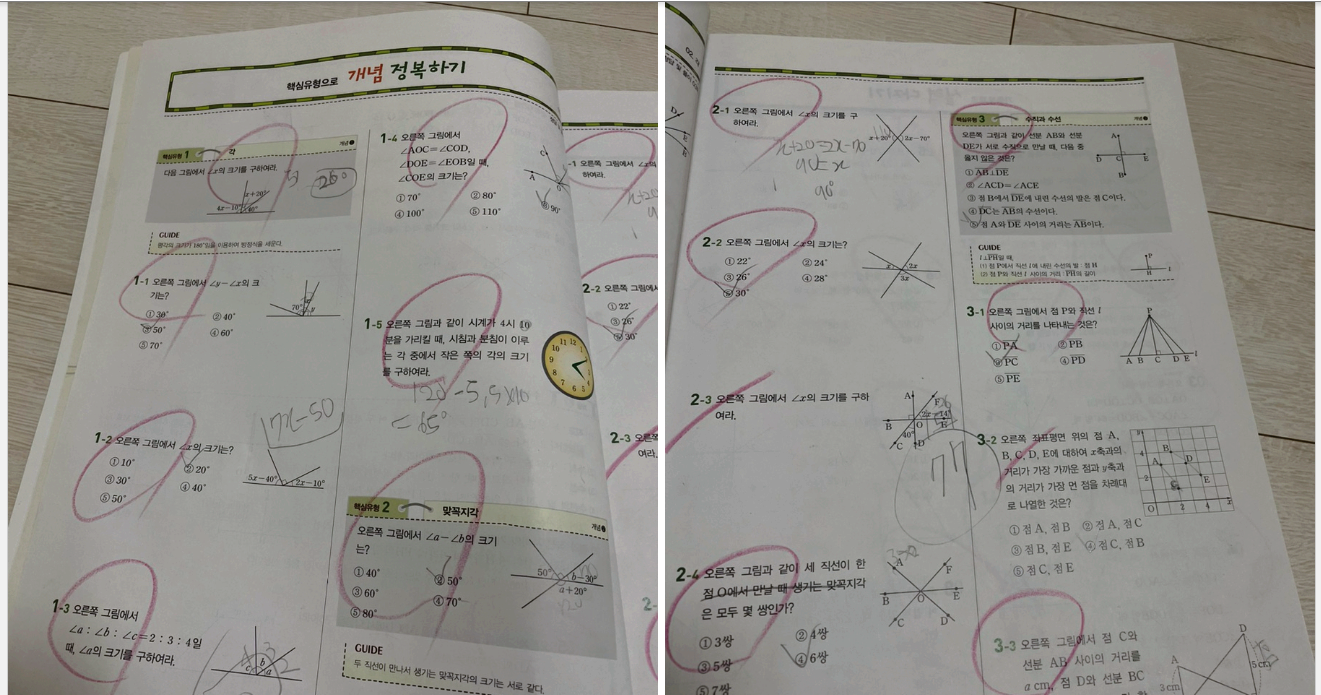 핵심유형으로 개념 정복하기
핵심유형 1 각
개념
다음 그림에서 ∠x의 크기를 구하여라.
x+20°
4x-10°
40°
GUIDE
평각의 크기가 180°임을 이용하여 방정식을 세운다.
1-1 오른쪽 그림에서 ∠y-∠x의 크
기는?
① 30° ② 40°
③ 50° ④ 60°
⑤ 70°
70°
x
y
1-2 오른쪽 그림에서 ∠x의 크기는?
① 10° ② 20°
③ 30° ④ 40°
⑤ 50°
5x-40°
2x-10°
7x-50
1-3 오른쪽 그림에서
∠a : ∠b : ∠c=2 : 3 : 4일
때, ∠a의 크기를 구하여라.
c b a
1-4 오른쪽 그림에서
∠AOC=∠COD,
∠DOE=∠EOB일 때,
∠COE의 크기는?
① 70° ② 80°
③ 90°
④ 100° ⑤ 110°
C
A
O
1-5 오른쪽 그림과 같이 시계가 4시 10
분을 가리킬 때, 시침과 분침이 이루
는 각 중에서 작은 쪽의 각의 크기
를 구하여라.
120-5.5×10
=65°
핵심유형 2 맞꼭지각
개념
오른쪽 그림에서 ∠a-∠b의 크기
는?
① 40° ② 50°
③ 60° ④ 70°
⑤ 80°
50°
b-30°
a+20°
GUIDE
두 직선이 만나서 생기는 맞꼭지각의 크기는 서로 같다.
-1 오른쪽 그림에서 ∠x의
하여라.
2-2 오른쪽 그림에서
① 22°
③ 26°
⑤ 30°
2-3 오른쪽
2-1 오른쪽 그림에서 ∠x의 크기를 구
하여라.
x+20°
2x-70°
x+20=2x-70
90=x
90°
2-2 오른쪽 그림에서 ∠x의 크기는?
① 22° ② 24°
③ 26° ④ 28°
⑤ 30°
x
2x
3x
2-3 오른쪽 그림에서 ∠x의 크기를 구하
여라.
A
F
2x-14°
B
O
E
40°
C
D
77
2-4 오른쪽 그림과 같이 세 직선이 한
점 O에서 만날 때 생기는 맞꼭지각
은 모두 몇 쌍인가?
① 3쌍 ② 4쌍
③ 5쌍 ④ 6쌍
⑤ 7쌍
A
F
B
O
E
C
D
핵심유형 3 수직과 수선
개념
오른쪽 그림과 같이 선분 AB와 선분
DE가 서로 수직으로 만날 때, 다음 중
옳지 않은 것은?
① AB⊥DE
② ∠ACD=∠ACE
③ 점 B에서 DE에 내린 수선의 발은 점 C이다.
④ DC는 AB의 수선이다.
⑤ 점 A와 DE 사이의 거리는 AB이다.
A
D
C
E
B
GUIDE
l⊥PH일 때,
(1) 점 P에서 직선 l에 내린 수선의 발 : 점 H
(2) 점 P와 직선 l 사이의 거리 : PH의 길이
P
H
l
3-1 오른쪽 그림에서 점 P와 직선 l
사이의 거리를 나타내는 것은?
① PA ② PB
③ PC ④ PD
⑤ PE
P
A B C D E l
3-2 오른쪽 좌표평면 위의 점 A,
B, C, D, E에 대하여 x축과의
거리가 가장 가까운 점과 y축과
의 거리가 가장 먼 점을 차례대
로 나열한 것은?
① 점 A, 점 B ② 점 A, 점 C
③ 점 B, 점 E ④ 점 C, 점 B
⑤ 점 C, 점 E
y
4
B
A
D
2
C
E
O
2
4
x
3-3 오른쪽 그림에서 점 C와
선분 AB 사이의 거리를
a cm, 점 D와 선분 BC
D
A
3cm
5 cm